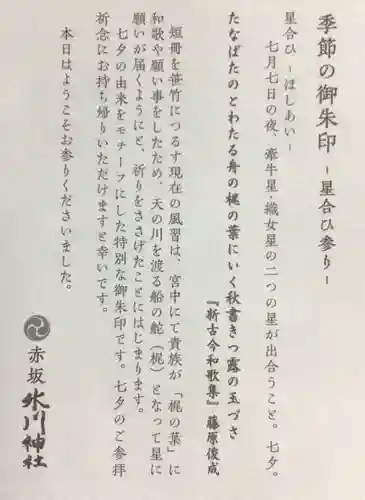 季節の御朱印 －星合ひ参り－
星合ひ －ほしあい－
七月七日の夜、牽牛星・織女星の二つの星が出合うこと。七夕。
たなばたのとわたる舟の梶の葉にいく秋書きつ露の玉づさ
『新古今和歌集』藤原俊成
短冊を笹竹につるす現在の風習は、宮中にて貴族が「梶の葉」に
和歌や願い事をしたため、天の川を渡る船の舵（梶）となって星に
願いが届くようにと、祈りをささげたことにはじまります。
七夕の由来をモチーフにした特別な御朱印です。七夕のご参拝
祈念にお持ち帰りいただけますと幸いです。
本日はようこそお参りくださいました。
赤坂 氷川神社